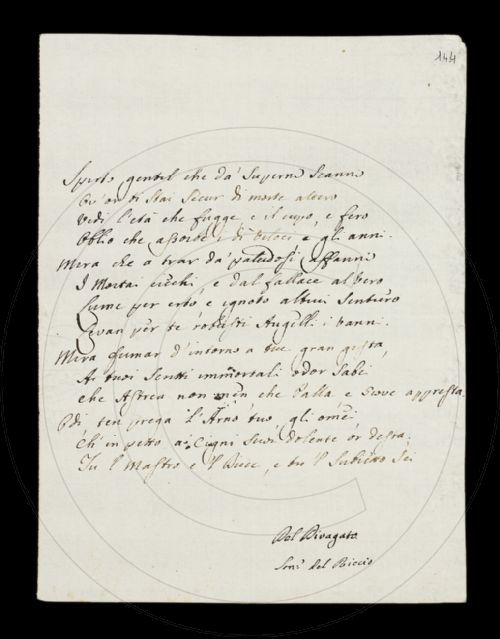 144
Spirto gentil che da' Superni Scanni
Ov'or ti stai Secur di morte altero
Vedi l'età che fugge, e il cupo, e fero
Obblio che assorbe i dì veloci e gli anni.
Mira che a trar da' paludosi affanni
I Mortai ciechi, e dal fallace al Vero
Lume per erto e ignoto altrui Sentiero
Levan per te robusti Augelli i vanni.
Mira fumar d'intorno a tue gran gesta,
Ai tuoi Scritti immortali odor Sabei
che Astrea non men che Palla e Giove appresta.
Odi, ten prega l'Arno tuo, gli omei
Ch'in petto ai Cigni Suoi dolente or desta;
Tu l' Mastro e 'l Duce, e tu 'l Subietto Sei
Del Divagato
del Riccio